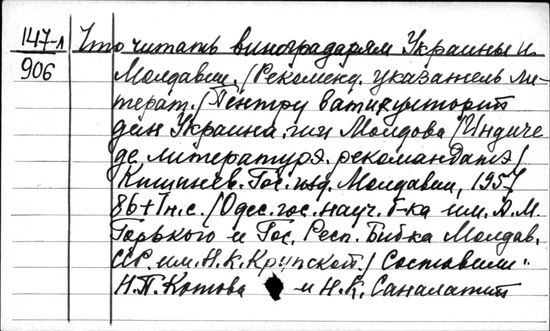 147-л
906
Что читать виноградарям Украины и
Молдавии. /Рекоменд. указатель ли-
терат./ Пентру
дин Украина ши Молдова /Индиче
де литература рекомандатэ/
Кишинев. Гос. изд. Молдавии, 1957
86+1н.с. /Одес. гос. науч. б-ка им. А.М.
Горького и Гос. Респ. Биб-ка Молдав.
ССР им. Н.К. Крупской./ Составили:
Н.П. Котова и Н.К. Саналатий